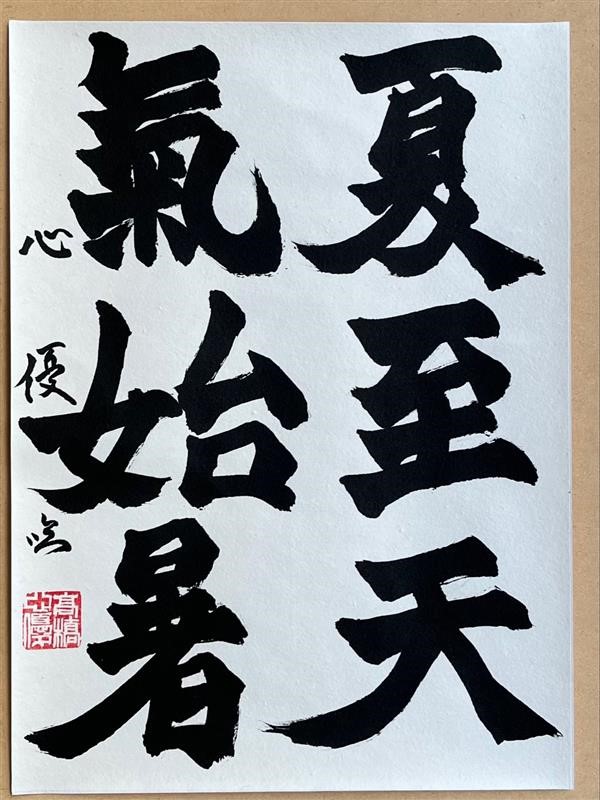 夏至天
氣始暑
心優
髙橋
心優